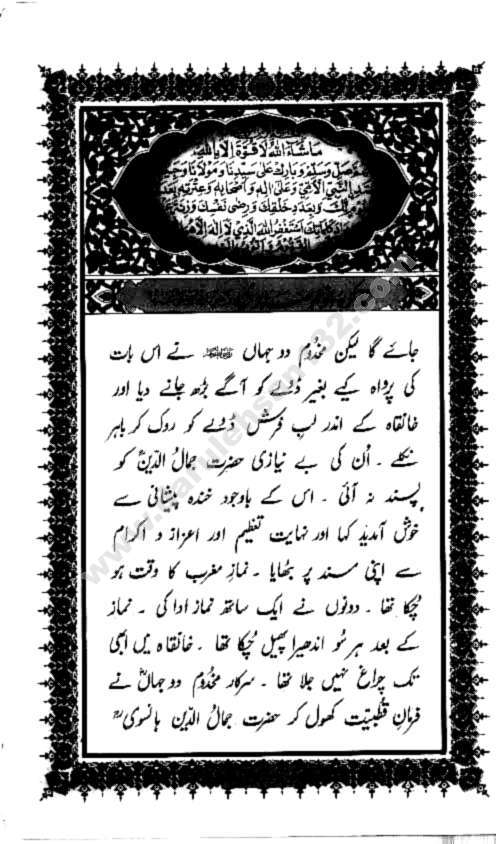 ماشاء الله لا قوة إلا بالله
وصل وسلم وبارك على سيدنا ومولانا
النبي الأمي وعلى آله وأصحابه وعترته بعدد
وبعدد خلقك ورضى نفسك وزنة
كلماتك أستغفر الله الذي لا إله إلا هو
جائے گا لیکن مخدوم دو جہاں نے اس بات
کی پرواہ کیے بغیر ڈبے کو آگے بڑھ جانے دیا اور
خانقاہ کے اندر لبِ فرش ڈبے کو روک کر باہر
نکلے ۔ اُن کی بے نیازی حضرت جمالُ الدینؒ کو
پسند نہ آئی ۔ اس کے باوجود خندہ پیشانی سے
خوش آمدید کہا اور نہایت تعظیم اور اعزاز و اکرام
سے اپنی مسند پر بٹھایا ۔ نمازِ مغرب کا وقت ہو
چُکا تھا ۔ دونوں نے ایک ساتھ نماز ادا کی ۔ نماز
کے بعد ہر سُو اندھیرا پھیل چُکا تھا ۔ خانقاہ میں ابھی
تک چراغ نہیں جلا تھا ۔ سرکار مخدوم دو جہاںؒ نے
فرمانِ قطبیت کھول کر حضرت جمالُ الدین ہانسویؒ